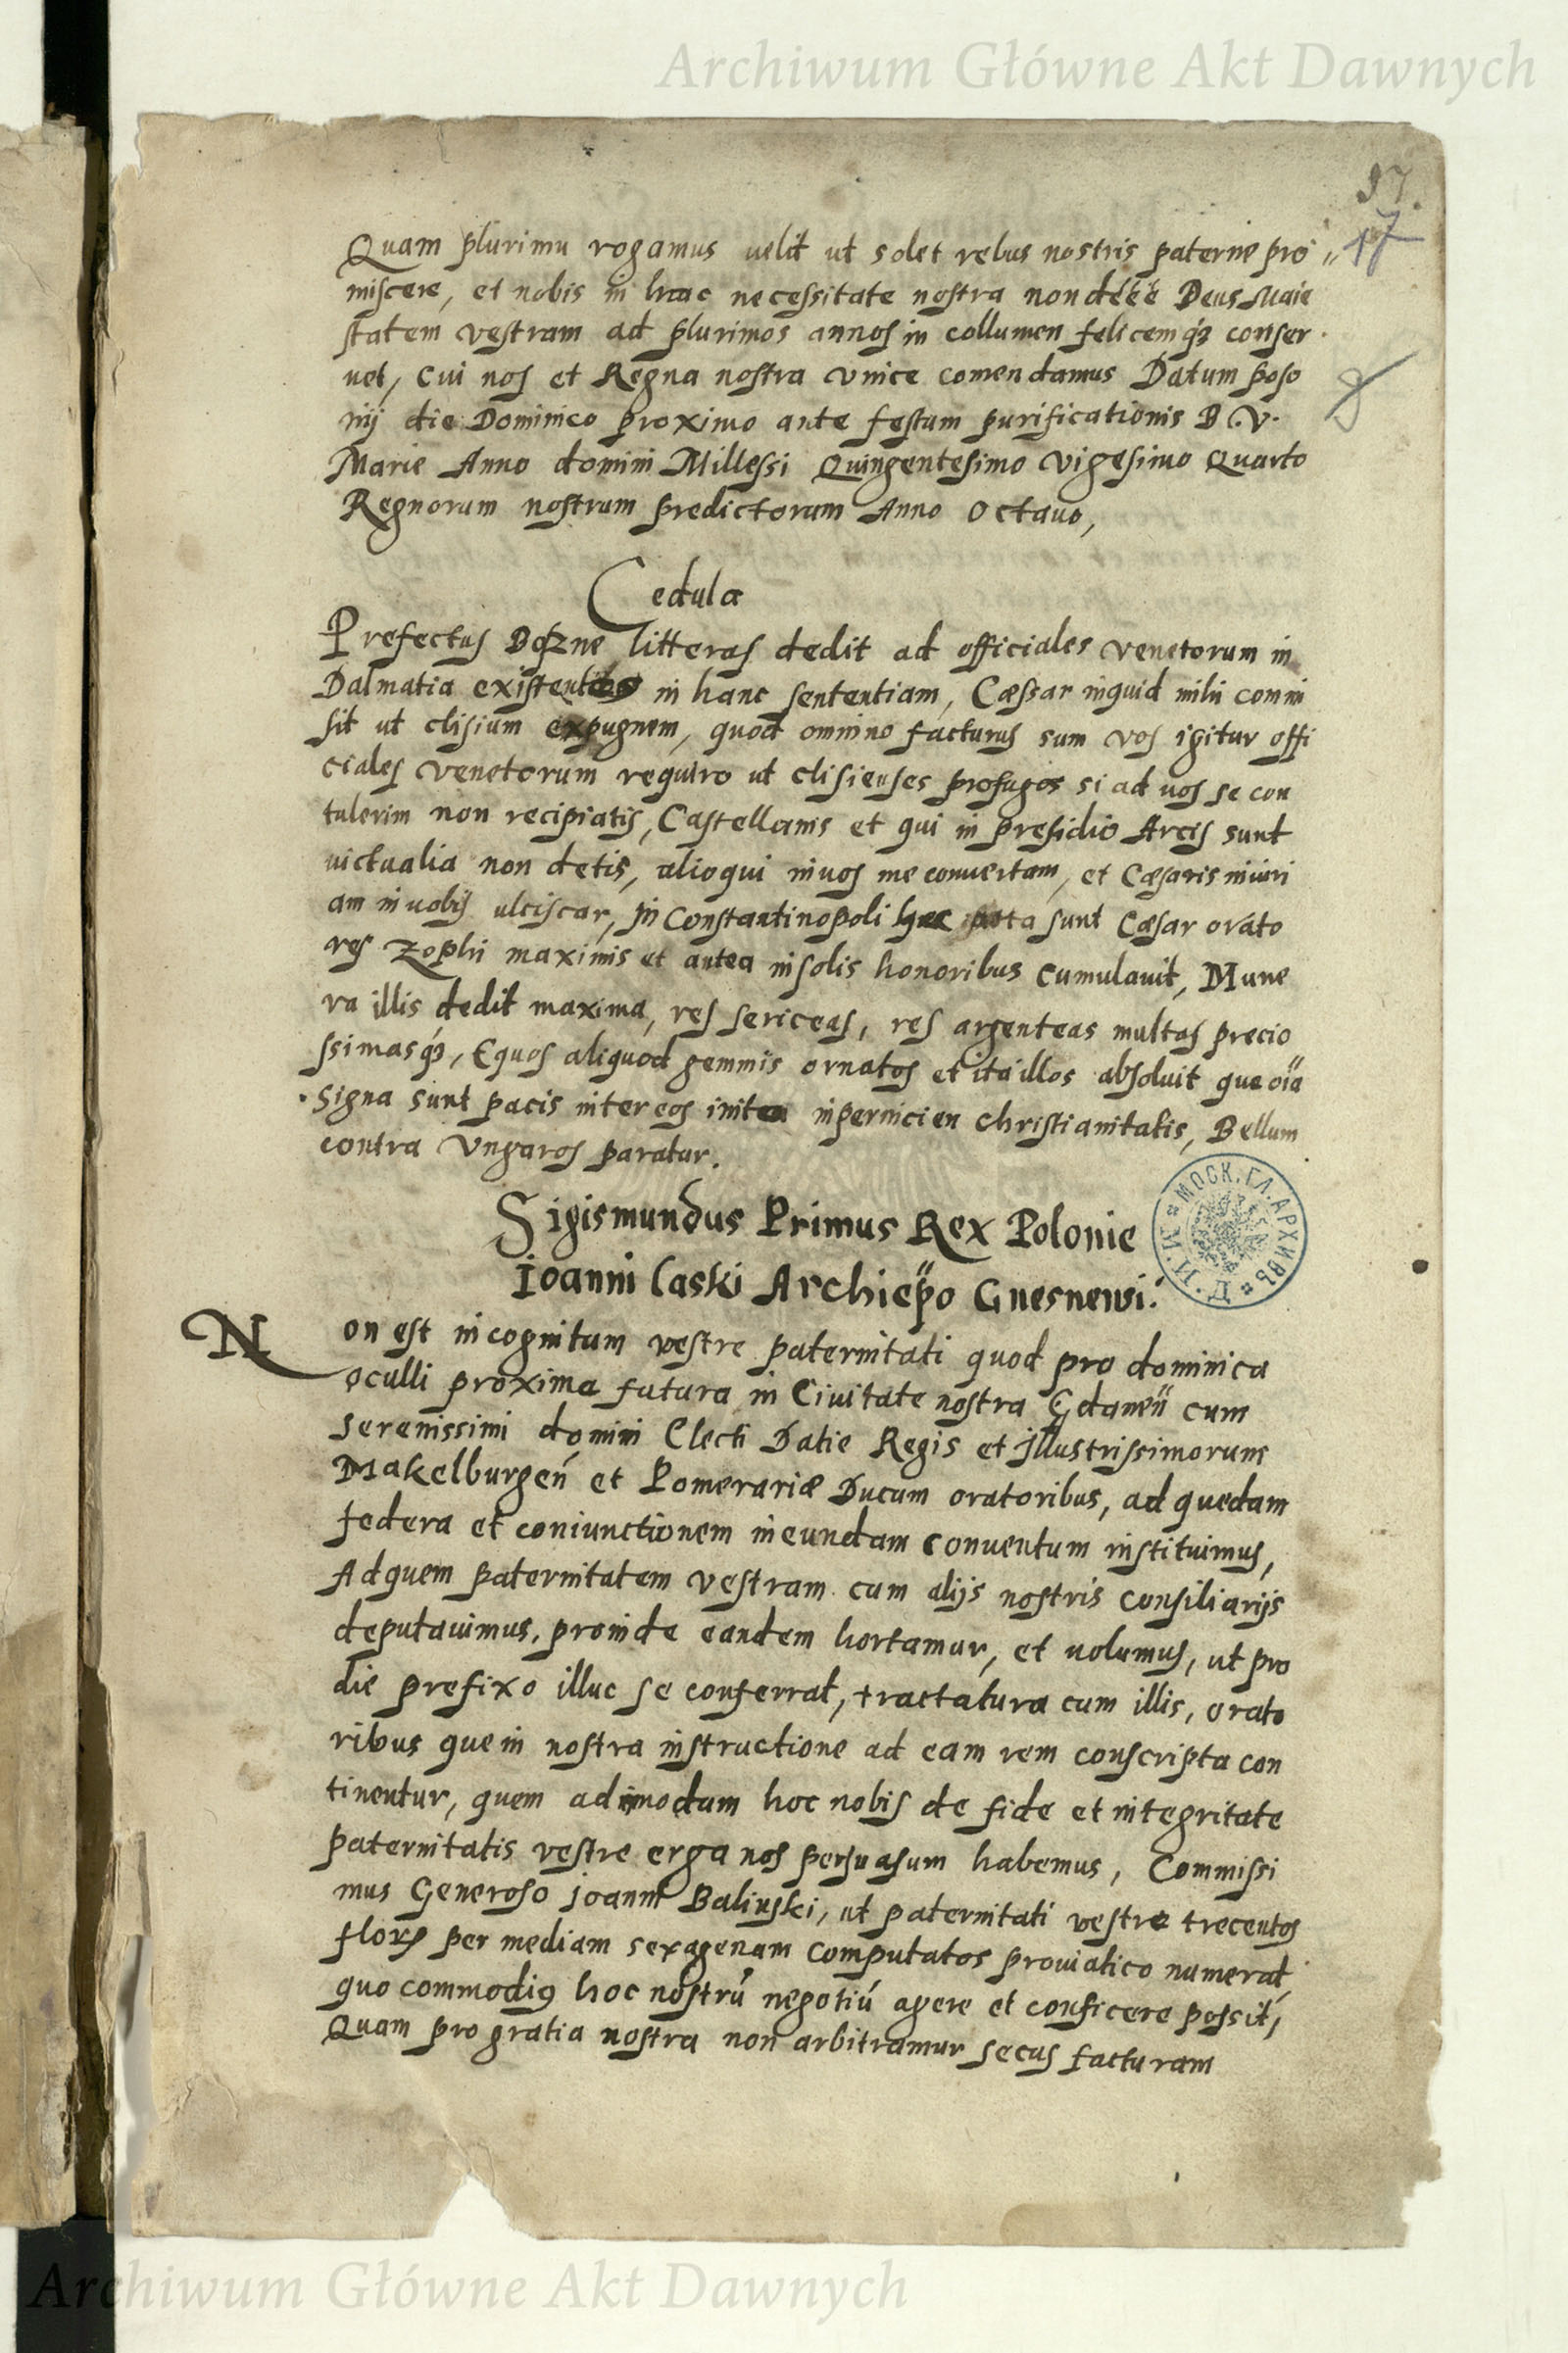 Archiwum Główne Akt Dawnych
17
Quam plurimu rogamus uelit ut solet rebus nostris paterne pro
miscere, et nobis in hac necessitate nostra non deéé Deus Maie
statem vestram ad plurimos annos in collumen felicemq3 conser
uet, cui nos et Regna nostra vnice comendamus Datum poso
nij die Dominico proximo ante festum purificationis B. V.
Marie Anno domini Millessi Quingentesimo vigesimo Quarto
Regnorum nostrum predictorum Anno octauo,
Cedula
Prefectus Bozne litteras dedit ad officiales venetorum in
Dalmatia existentes in hanc sententiam, Cæssar inquid mihi commi
sit ut clisium expugnem, quod omnino facturus sum vos igitur offi
ciales venetorum requiro ut clisienses profugos si ad uos se con
tulerim non recipiatis, Castellanis et qui in presidio Arcis sunt
uictualia non detis, alioqui in uos me conuertam, et Cæsaris iniuri
am in uobis ulciscar, in Constantinopoli hec nota sunt Cæsar orato
res Zophi maximis et antea insolis honoribus cumulauit, Mune
ra illis dedit maxima, res sericeas, res argenteas multas precio
ssimasq3, Equos aliquod gemmis ornatos et ita illos absoluit que oia
signa sunt pacis inter eos inita in pernicien christianitatis, Bellum
contra Vngaros paratur.
Sigismundus Primus Rex Polonie
Ioanni Laski Archiepo Gnesnensi.
МОСК. ГЛ. АРХИВЪ М. И. Д.
Non est incognitum vestre paternitati quod pro dominica
oculli proxima futura in Ciuitate nostra Gdanen cum
serenissimi domini Electi Datie Regis et illustrissimorum
Makelburgen et Pomerariæ Ducum oratoribus, ad quedam
federa et coniunctionem ineundam conuentum instituimus,
Ad quem paternitatem vestram cum alijs nostris consiliarijs
deputauimus, proinde eandem hortamur, et uolumus, ut pro
die prefixo illuc se conferrat, tractatura cum illis, orato
ribus que in nostra instructione ad eam rem conscripta con
tinentur, quem admodum hoc nobis de fide et integritate
paternitatis vestre erga nos persuasum habemus, Commissi
mus Generoso ioanni Balinski, ut paternitati vestre trecentos
flor per mediam sexagenam computatos pro uiatico numerat,
quo commodius hoc nostrū negotiū agere et conficere possit,
Quam pro gratia nostra non arbitramur secus facturam
Archiwum Główne Akt Dawnych